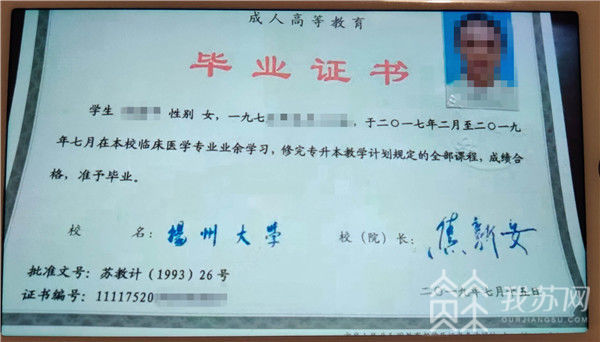 成人高等教育
毕业证书
学生 性别 女，一九七 ，于二〇一七年二月至二〇一九
年七月在本校临床医学专业业余学习，修完专升本教学计划规定的全部课程，成绩合
格，准予毕业。
校 名：扬州大学 校（院）长：焦新安
批准文号：苏教计（1993）26号
证书编号：11117520
二〇一九年七月十五日
我苏网
OURJIANGSU.COM